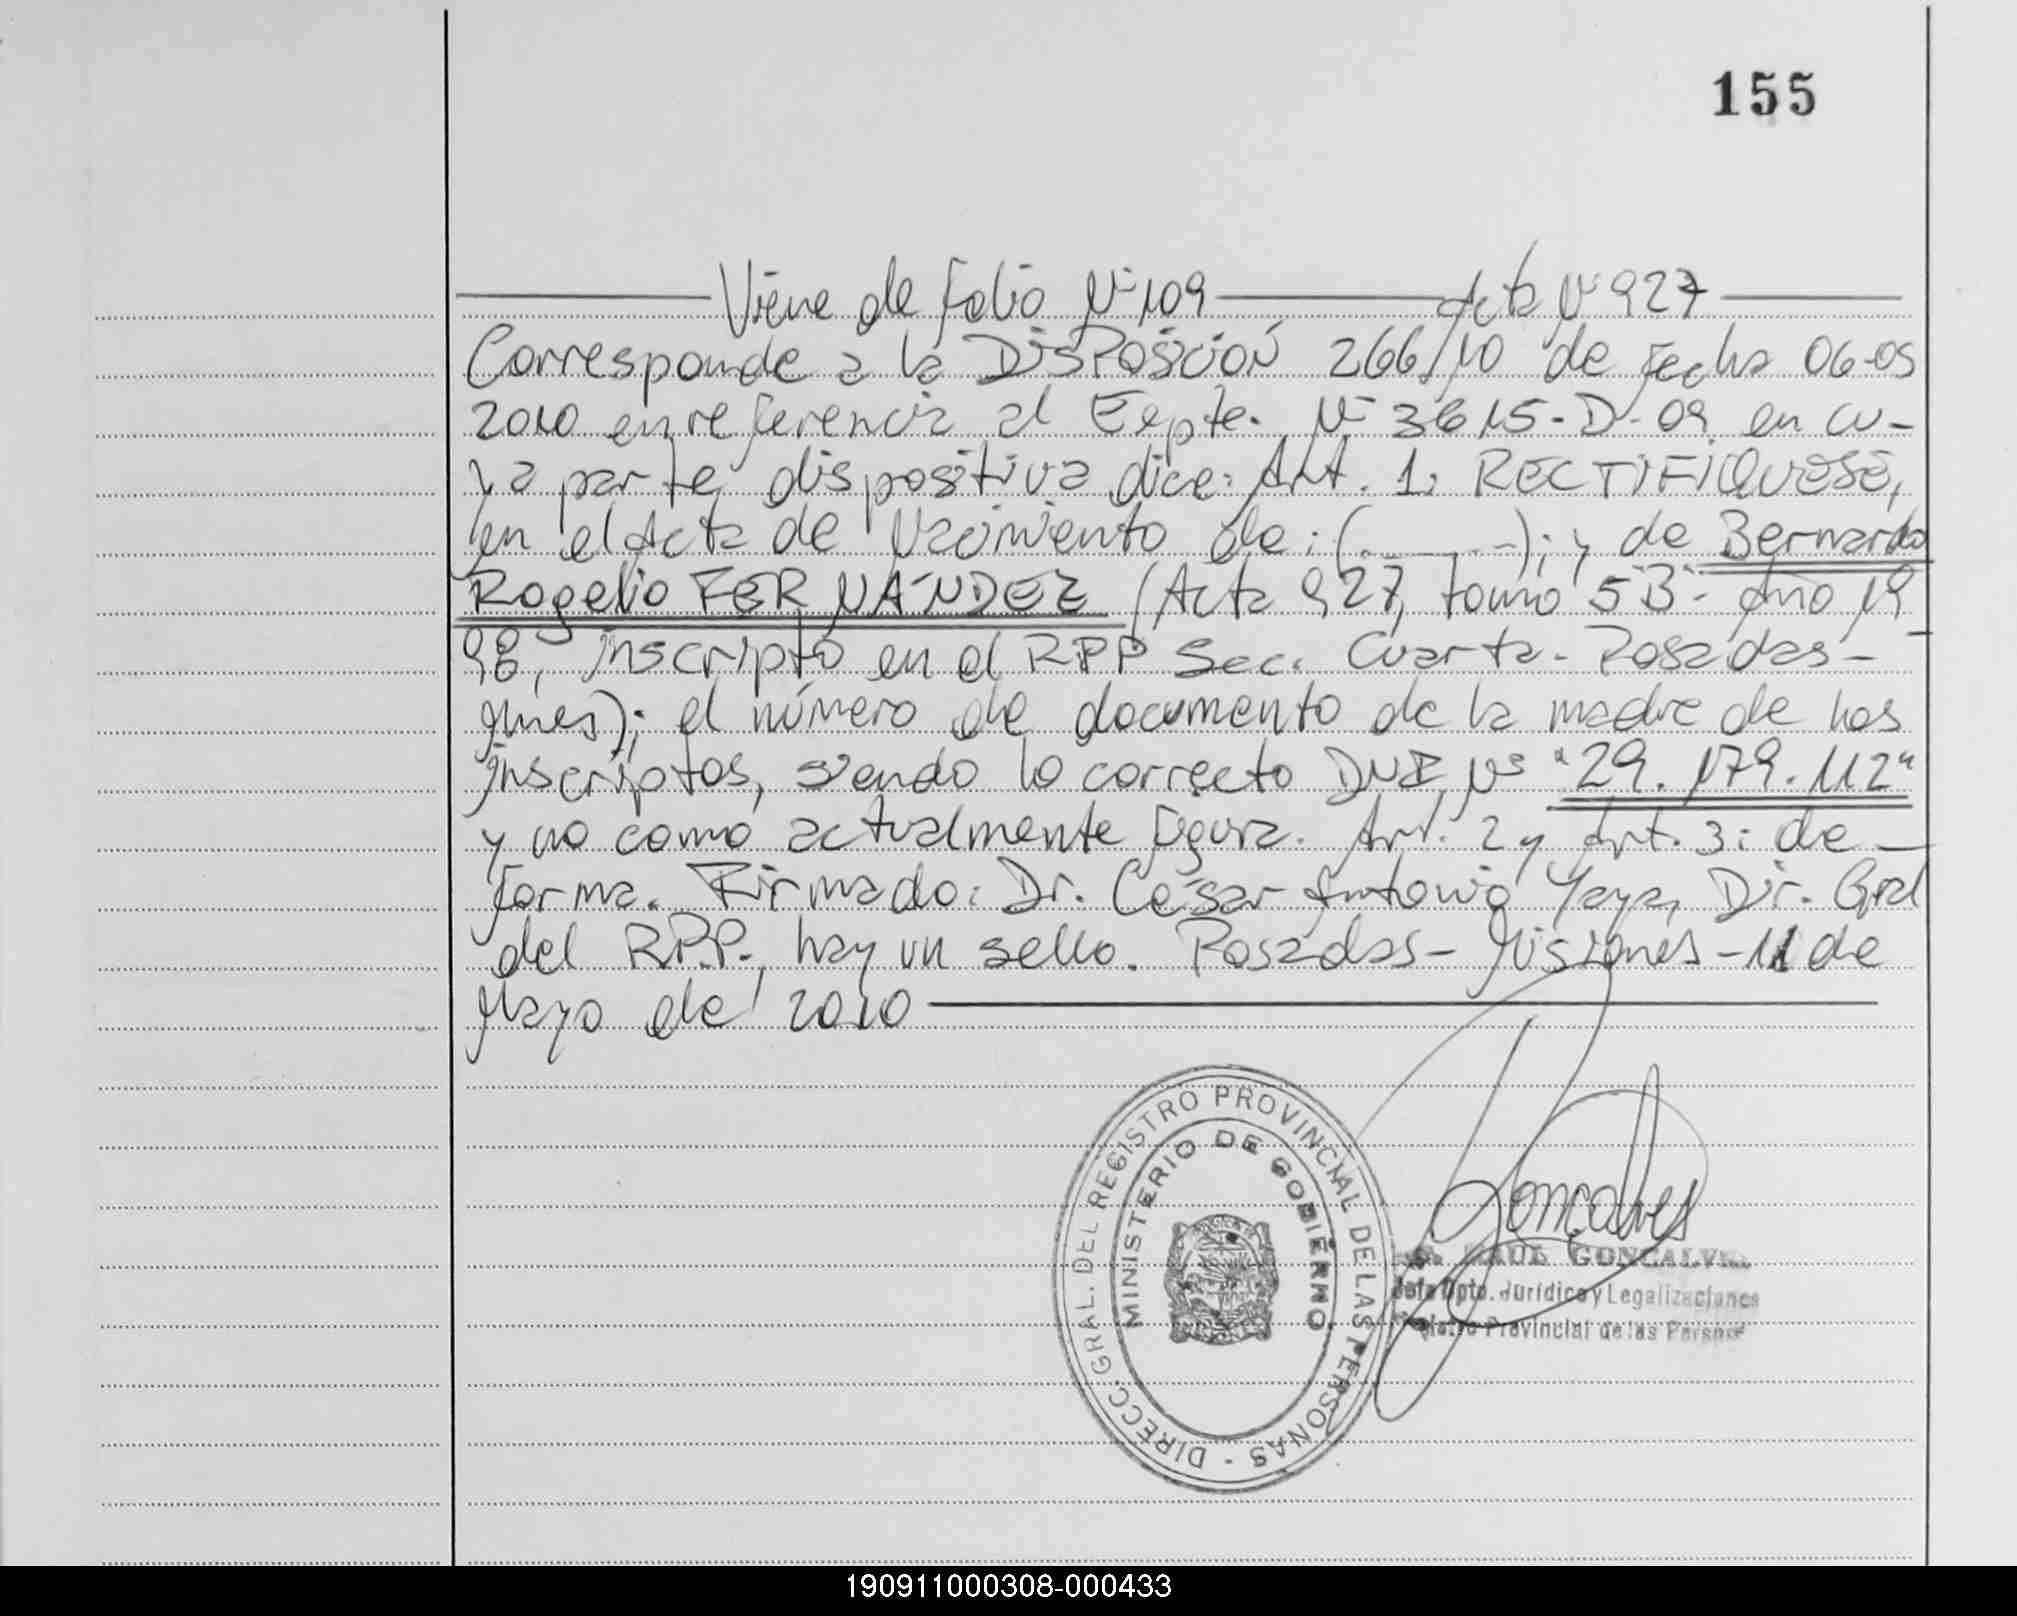 155
Viene de Folio Nº 109 Acta Nº 927
Corresponde a la DISPOSICIÓN 266/10 de Fecha 06-05
2010 en referencia al Expte. Nº 3615-D-09 en cu-
ya parte dispositiva dice: Art. 1: RECTIFIQUESE,
en el Acta de Nacimiento de: (......); y de Bernardo
Rogelio FERNÁNDEZ (Acta 927, tomo 5"B"- Año 19
98, inscripto en el RPP Sec. Cuarta- Posadas-
Mnes); el número de documento de la madre de los
inscriptos, siendo lo correcto DNI Nº "29.179.112"
y no como actualmente figura. Art. 2 y Art. 3: de
forma. Firmado: Dr. César Antonio Yaya, Dir. Gral
del R.P.P., hay un sello. Posadas- Misiones- 11 de
Mayo de 2010
DIRECC. GRAL. DEL REGISTRO PROVINCIAL DE LAS PERSONAS -
MINISTERIO DE GOBIERNO
Goncalves
RAUL GONCALVES
Jefe Dpto. Jurídico y Legalizaciones
Registro Provincial de las Personas
190911000308-000433